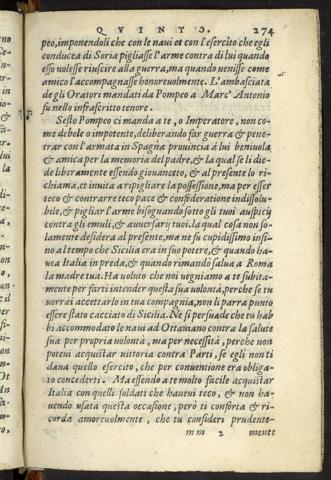 QVINTO. 274
peo, imponendoli che con le naui et con l'esercito che egli
conducea di Soria pigliasse l'arme contra di lui quando
esso volesse riuscire alla guerra, ma quando venisse come
amico l'accompagnasse honoreuolmente. L'ambasciata
de gli Oratori mandati da Pompeo a Marc' Antonio
fu nello infrascritto tenore.
Sesto Pompeo ci manda a te, o Imperatore, non co
me debole o impotente, deliberando far guerra & pene-
trar con l'armata in Spagna prouincia a lui beniuola,
& amica per la memoria del padre, & la qual se li die-
de liberamente essendo giouanetto, & al presente lo ri-
chiama, et inuita a ripigliare la possessione, ma per esser
teco & contrarre teco pace & confideratione indissolu-
bile, & pigliar l'arme bisognando sotto gli tuoi auspicij
contra gli emuli, & auuersarij tuoi. la qual cosa non so-
lamente desidera al presente, ma ne fu cupidissimo insi-
no al tempo che Sicilia era in suo potere, & quando ha-
uea Italia in preda, & quando rimandò salua a Roma
la madre tua. Ha voluto che noi uegniamo a te subita-
mente per farti intender questa sua volontà, perche se tu
vorrai accettarlo in tua compagnia, non li parra punto
essere stato cacciato di Sicilia. Ne si persuade che tu hab
bi accommodato le naui ad Ottauiano contra la salute
sua per propria volontà, ma per necessità, perche non
poteui acquistar uittoria contra Parti, se egli non ti
daua quello esercito, che per conuentione era obliga-
to concederti. Ma essendo a te molto facile acquistar
Italia con quelli soldati che haueui teco, & non ha-
uendo usata questa occasione, però ti conforta & ri-
corda amoreuolmente, che tu consideri prudente-
mm 2 mente